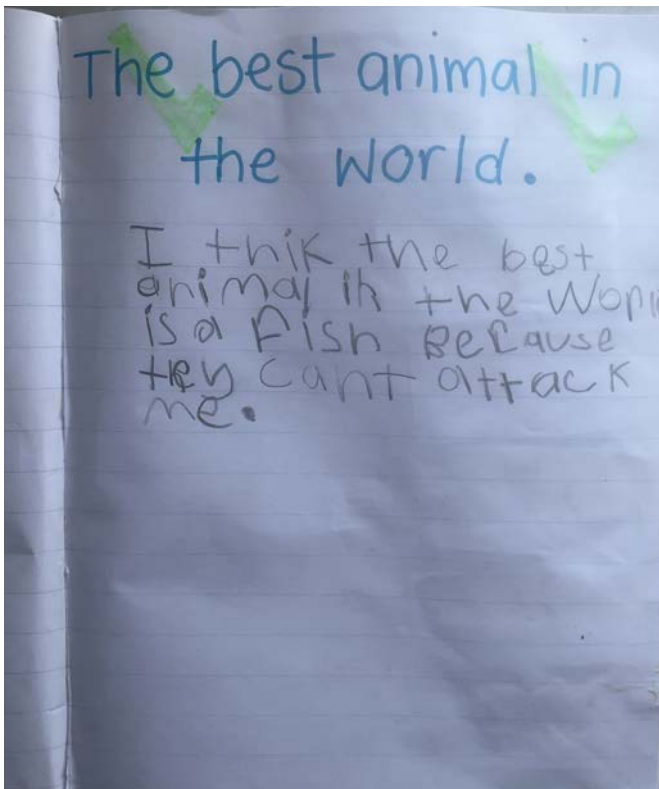 The best animal in
the world.
I thik the best
animal in the World
is a Fish BeCause
they cant attack
me.